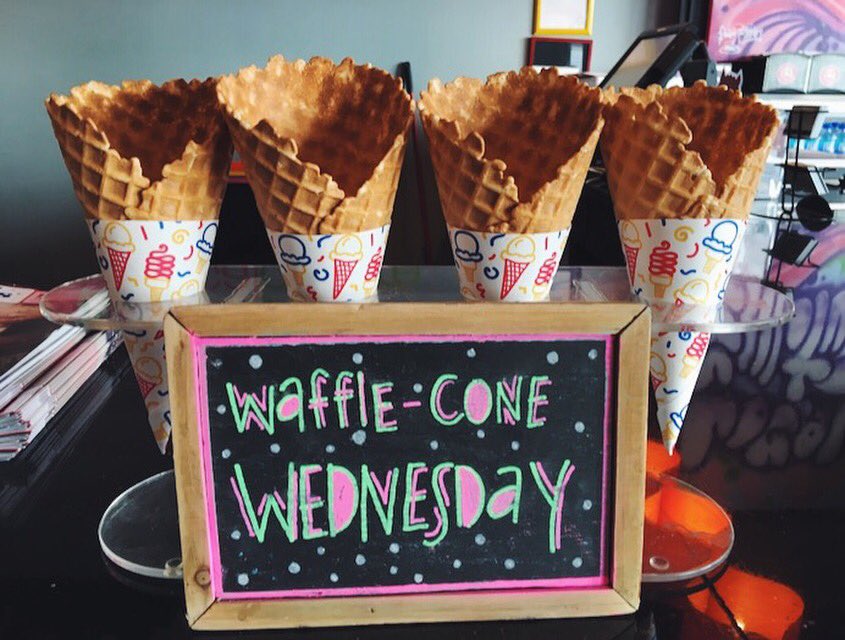 Waffle-CONE
WEDNESDAY